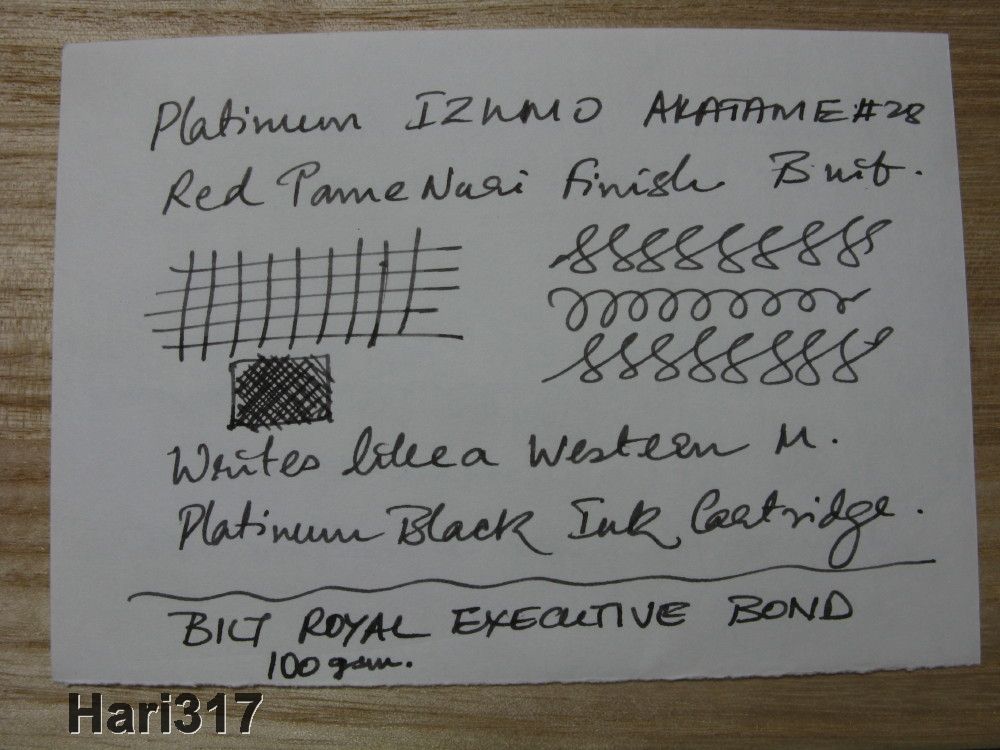 Platinum IZUMO AKATAME #28
Red Tame Nuri finish B nib.
Writes like a Western M.
Platinum Black Ink Cartridge.
BILT ROYAL EXECUTIVE BOND
100 gsm.
Hari317